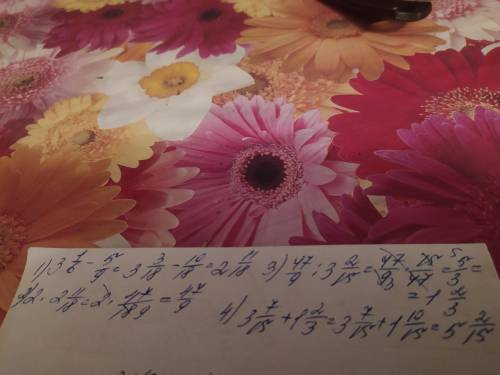 1) 3 7/6 - 5/9 = 3 3/18 - 10/18 = 2 11/18 3) 47/9 : 3 2/15 = 47/9 3 · 15/47 5 = 5/3 =
= 1 2/3
2) 2 · 2 11/18 = 2 · 47/18 9 = 47/9
4) 3 7/15 + 1 2/3 = 3 7/15 + 1 10/15 = 5 2/15